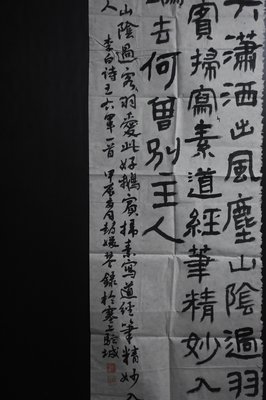 瀟洒出風塵山陰過羽
賓掃寫素道經筆精妙入
去何曾別主人
山陰過客羽愛此好鵝賓掃素寫道經筆精妙入
人
李白诗王右軍一首 甲辰 月彭媛琴 錄於塞上駝城